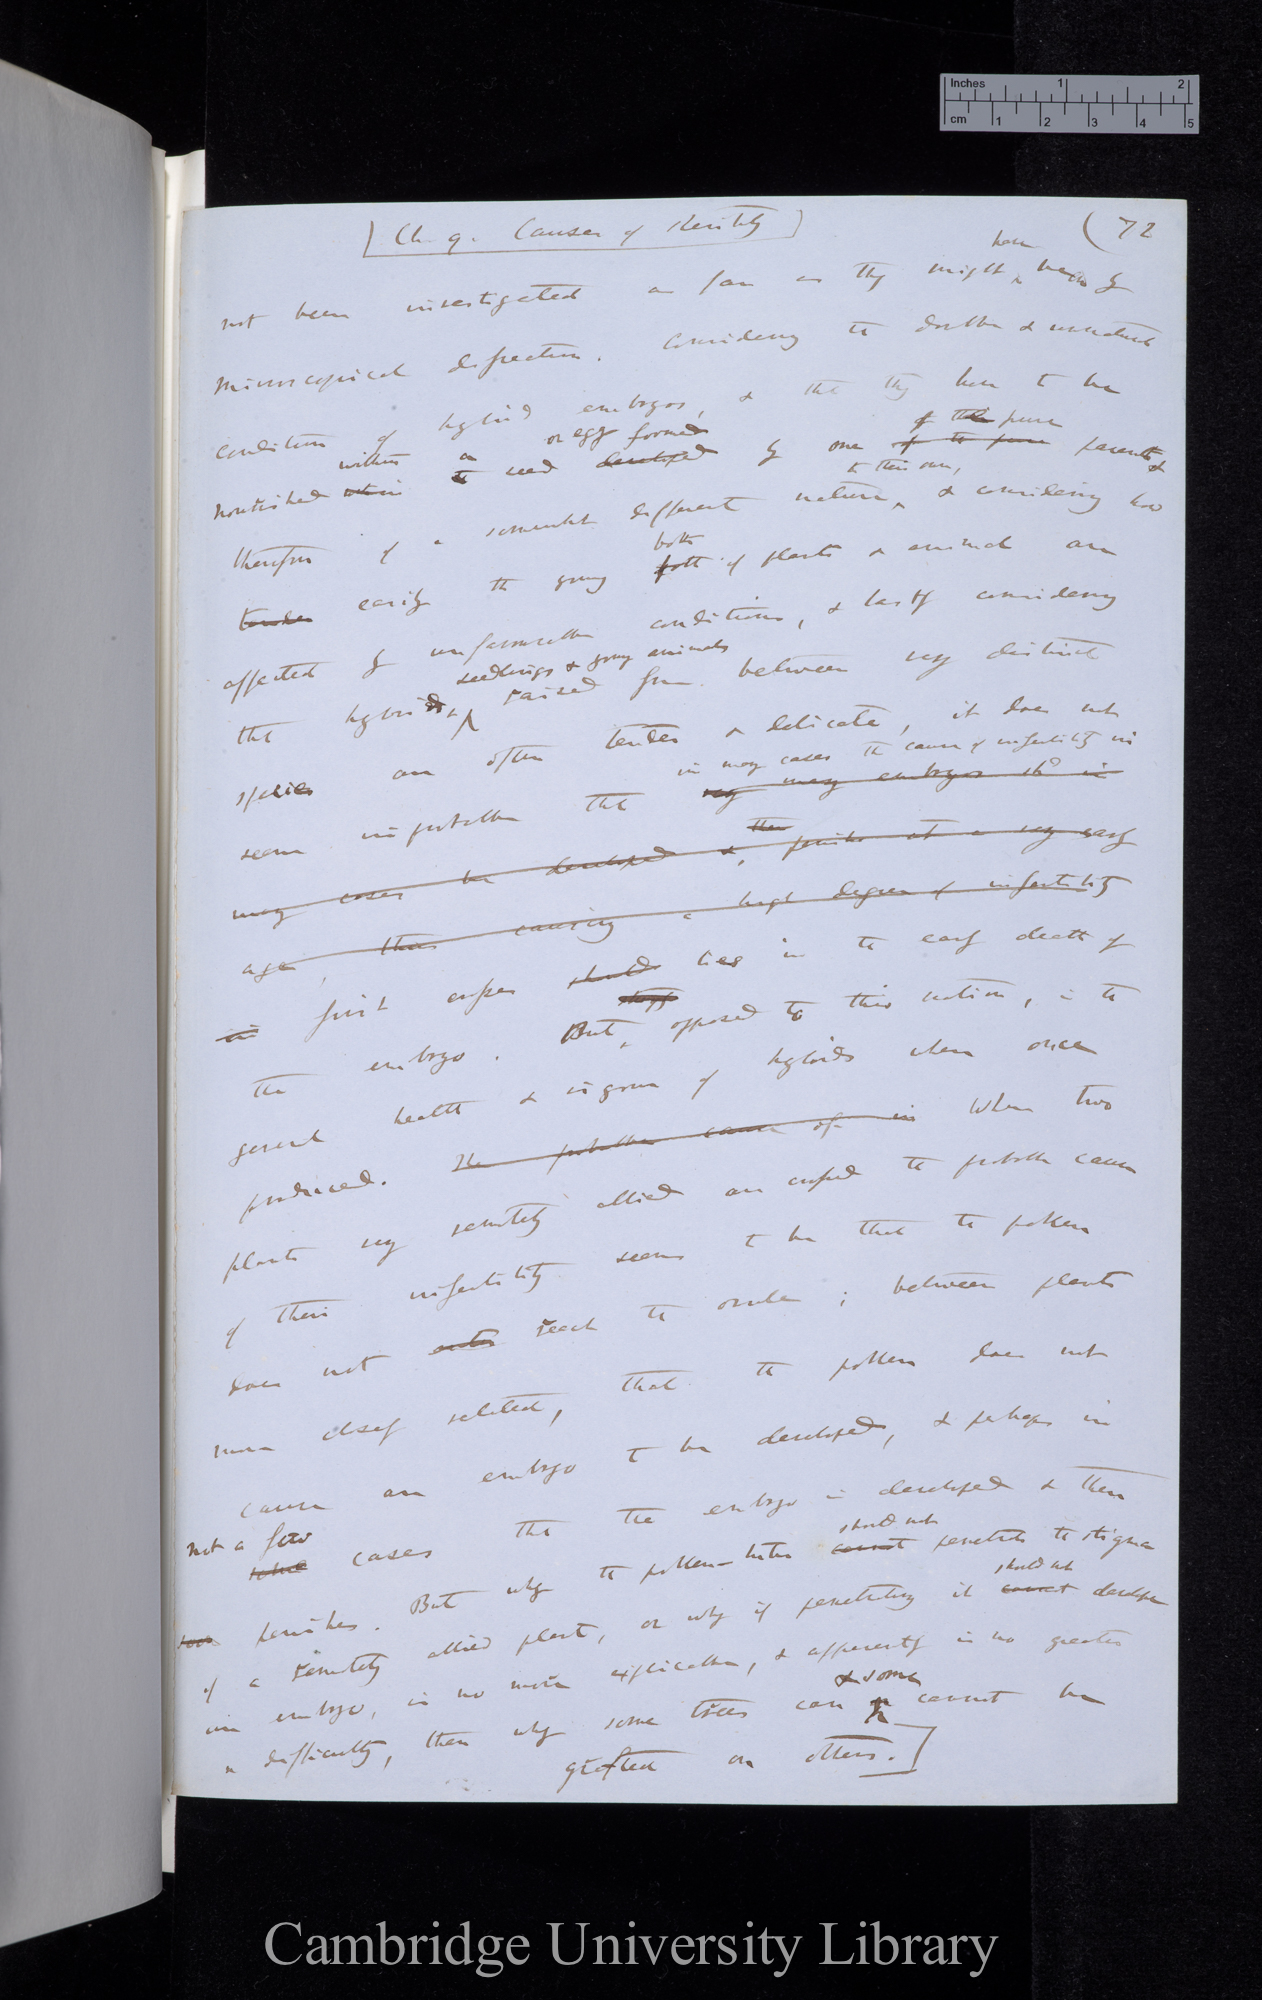 Inches 1 2
cm 1 2 3 4 5
[Ch. 9. Causes of Sterility]
(72
have
not been investigated as far as they might, been by
microscopical dissection. Considering the double & unnatural
condition of hybrid embryos, & that they have to be
within a or egg formed of the pure
nourished within the seed developed by one of the pure parents &
to their own,
therefore of a somewhat different nature, & considering how
both
tender easily the young both of plants & animals are
affected by unfavourable conditions, & lastly considering
seedlings & young animals
that hybrids, raised from between very distinct
species are often tender & delicate, it does not
in many cases the cause of infertility in
seem improbable that very many embryos shd in
then
many cases be developed & perish at a very early
age, thus causing a high degree of infertility
in first crosses should lies in the early death of
the embryo. But, opposed to this notion, is the
general health & vigour of hybrids when once
produced. The probable cause of in When two
plants very remotely allied are crossed the probable cause
of their infertility seems to be that the pollen
does not enter reach the ovule; between plants
more closely related, that the pollen does not
cause an embryo to be developed, & perhaps in
not a few
some cases that the embryo is developed & then
should not
soon perishes. But why the pollen-tubes cannot penetrate the stigma
should not
of a remotely allied plant, or why if penetrating it cannot develope
an embryo, is no more explicable, & apparently is no greater
& some
a difficulty, then why some trees can & cannot be
grafted on others.]
Cambridge University Library